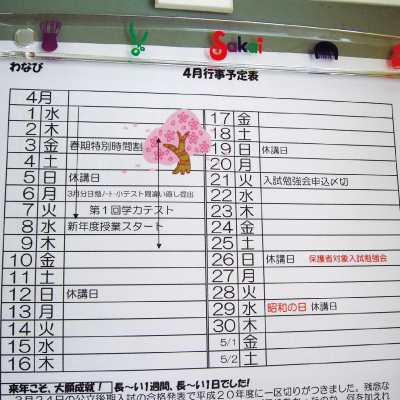 Sakai
わなび
4月行事予定表
4月
1 水
2 木
3 金 春期特別時間割
4 土
5 日 休講日
6 月 3月分日勉ノート・小テスト間違い直し提出
7 火 第1回学力テスト
8 水 新年度授業スタート
9 木
10 金
11 土
12 日 休講日
13 月
14 火
15 水
16 木
17 金
18 土
19 日 休講日
20 月
21 火 入試勉強会申込〆切
22 水
23 木
24 金
25 土
26 日 休講日 保護者対象入試勉強会
27 月
28 火
29 水 昭和の日 休講日
30 木
5/1 金
5/2 土
来年こそ、大願成就! 長~い1週間、長~い1日でした!
3月24日の公立後期入試の合格発表で平成20年度に一区切りがつきました。残念な